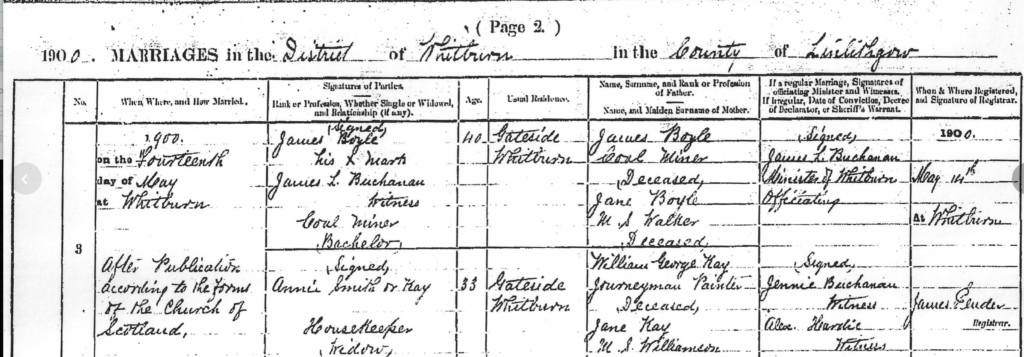 ( Page 2. )
1900. MARRIAGES in the District of Whitburn in the County of Linlithgow
No.
When, Where, and How Married.
Signatures of Parties.
Rank or Profession, Whether Single or Widowed, and Relationship (if any).
Age.
Usual Residence.
Name, Surname, and Rank or Profession of Father.
Name, and Maiden Surname of Mother.
If a regular Marriage, Signatures of officiating Minister and Witnesses.
If irregular, Date of Conviction, Decree of Declarator, or Sheriff's Warrant.
When & Where Registered, and Signature of Registrar.
3
1900.
on the Fourteenth
day of May
at Whitburn
After Publication
according to the Forms
of the Church of
Scotland,
Signed,
James Boyle
his x mark
James L. Buchanan
Witness
Coal Miner
Bachelor
Signed,
Annie Smith or Kay
Housekeeper
Widow,
40
33
Gateside
Whitburn
Gateside
Whitburn
James Boyle
Coal Miner
Deceased,
Jane Boyle
M. S. Walker
Deceased,
William George Kay
Journeyman Painter
Deceased,
Jane Kay
M. S. Williamson
Signed,
James L. Buchanan
Minister of Whitburn
Officiating
Signed,
Jennie Buchanan
Witness
Alex. Hardie
Witness
1900.
May 14th
At Whitburn
James
Registrar.